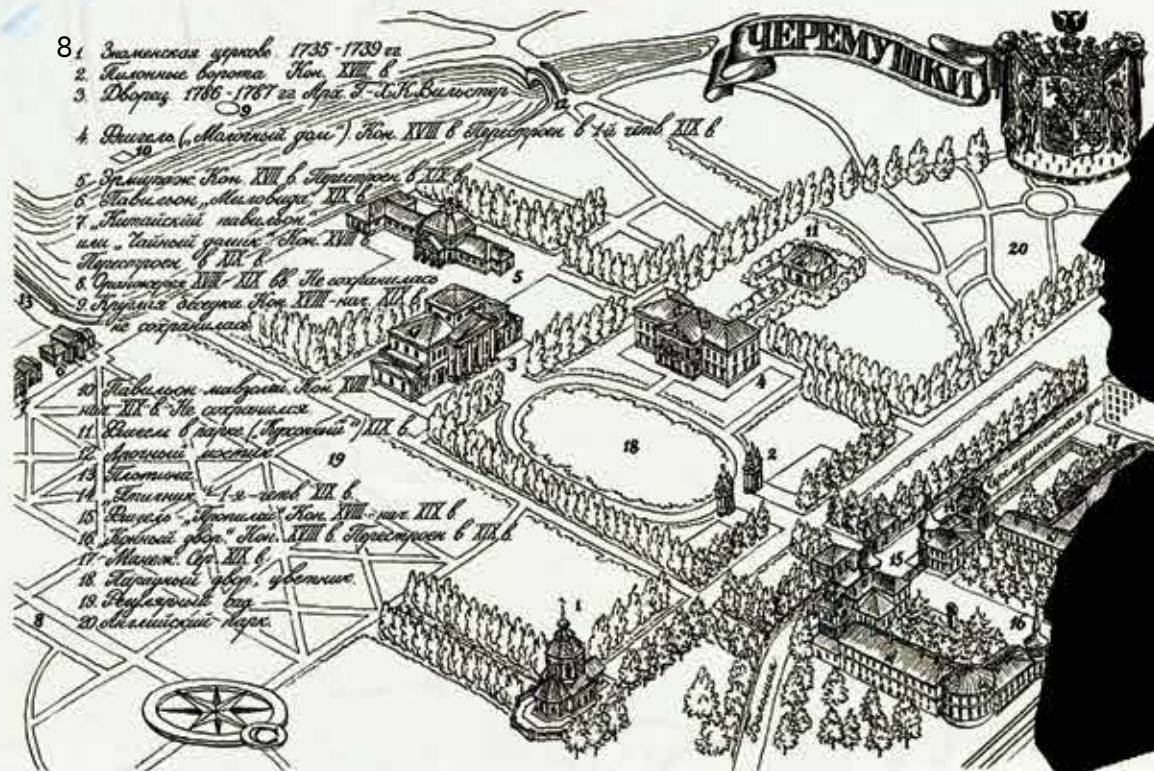 ЧЕРЕМУШКИ
8
1. Знаменская церковь 1735-1739 гг.
2. Пилонные ворота. Кон. XVIII в.
3. Дворец. 1786-1787 гг. Арх. Г-Х.К.Вильстер
4. Флигель („Молочный дом“) Кон. XVIII в. Перестроен в 1-й четв. XIX в.
5. Эрмитаж. Кон. XVIII в. Перестроен в XIX в.
6. Павильон „Миловида“ XIX в.
7. „Китайский павильон“
или „Чайный домик“. Кон. XVIII в.
Перестроен в XIX в.
8. Оранжерея XVIII-XIX вв. Не сохранилась
9. Круглая беседка. Кон. XVIII-нач. XIX в.
не сохранилась.
10. Павильон-мавзолей. Кон. XVIII
нач. XIX в. Не сохранился
11. Флигель в парке („Кухонный“) XIX в.
12. Арочный мостик
13. Плотина
14. „Птичник“ 1-я четв. XIX в.
15. Флигель-„Пропилеи“ Кон. XVIII-нач. XIX в.
16. „Конный двор“ Кон. XVIII в. Перестроен в XIX в.
17. Манеж. Сер. XIX в.
18. Парадный двор, цветник.
19. Регулярный сад
20. Английский парк.
9
10
12
13
5
11
20
3
4
18
2
17
19
15
16
1
8